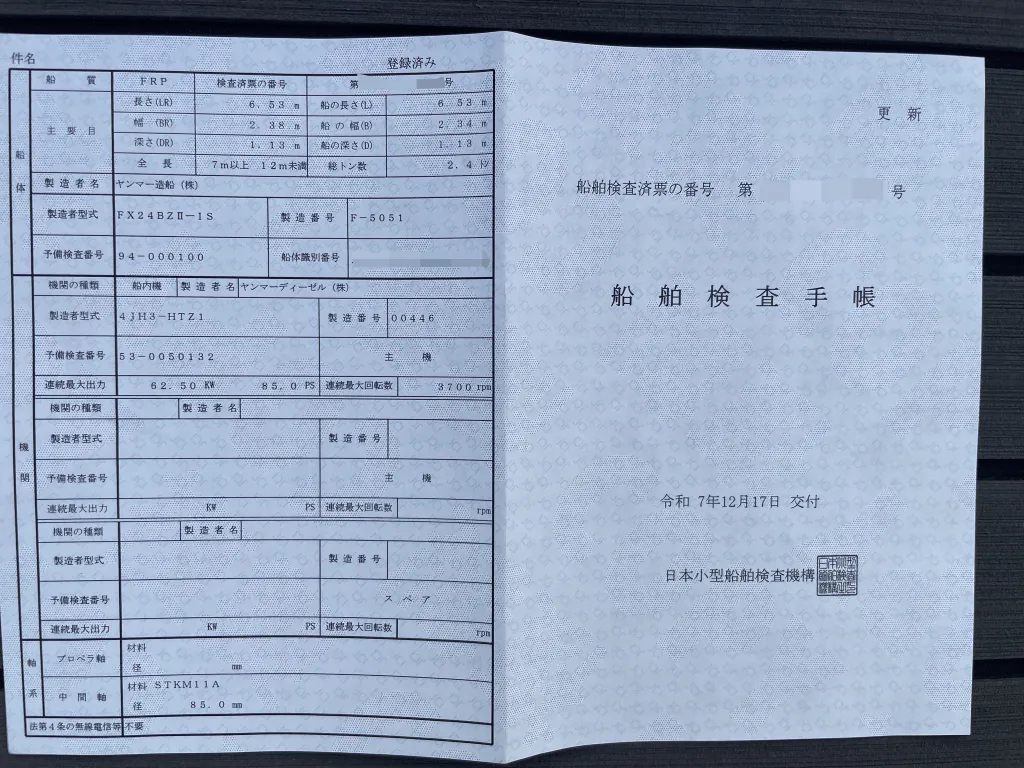 件名
登録済み
船体
船質 FRP 検査済票の番号 第 号
主要目
長さ(LR) 6.53 m 船の長さ(L) 6.53 m
幅 (BR) 2.38 m 船の幅(B) 2.34 m
深さ(DR) 1.13 m 船の深さ(D) 1.13 m
全長 7m以上 12m未満 総トン数 2.4 トン
製造者名 ヤンマー造船(株)
製造者型式 FX24BZⅡ-1S 製造番号 F-5051
予備検査番号 94-000100 船体識別番号
機関
機関の種類 船内機 製造者名 ヤンマーディーゼル(株)
製造者型式 4JH3-HTZ1 製造番号 00446
予備検査番号 53-0050132 主機
連続最大出力 62.50 KW 85.0 PS 連続最大回転数 3700 rpm
機関の種類 製造者名
製造者型式 製造番号
予備検査番号 主機
連続最大出力 KW PS 連続最大回転数 rpm
機関の種類 製造者名
製造者型式 製造番号
予備検査番号 スペア
連続最大出力 KW PS 連続最大回転数 rpm
軸系
プロペラ軸 材料
径 mm
中間軸 材料 STKM11A
径 85.0 mm
法第4条の無線電信等 不要
更新
船舶検査済票の番号 第 号
船舶検査手帳
令和 7年12月17日 交付
日本小型船舶検査機構